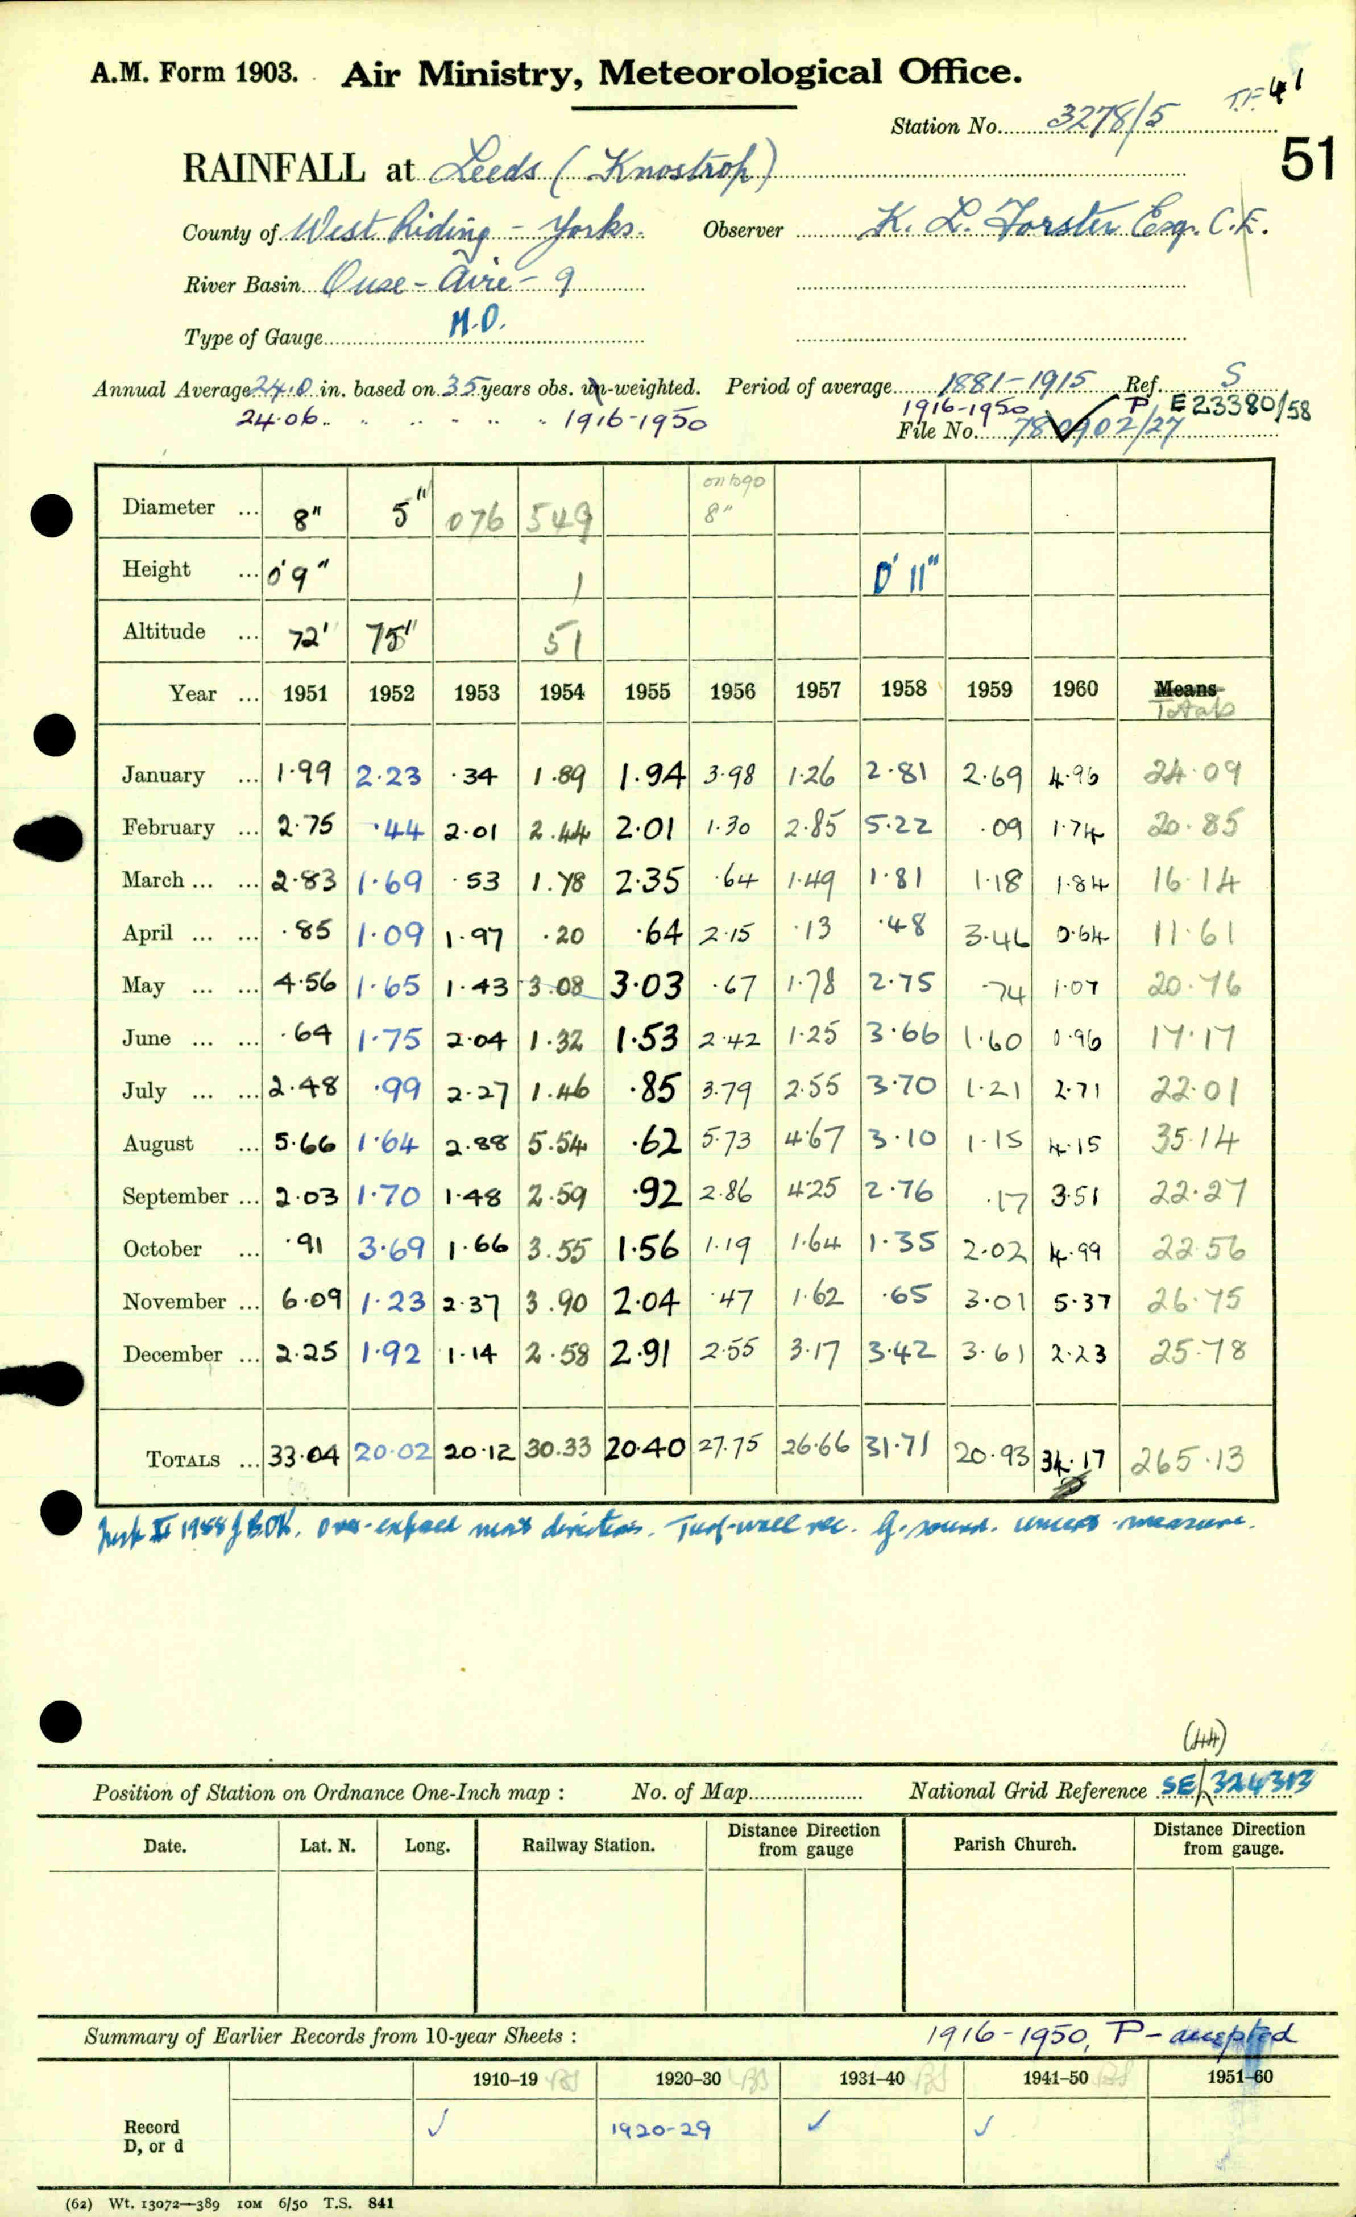 A.M. Form 1903. Air Ministry, Meteorological Office.
T.F. 41
Station No. 3278/5
51
RAINFALL at Leeds (Knostrop)
County of West Riding - Yorks. Observer K. L. Forster Esq. C.E.
River Basin Ouse - Aire - 9
Type of Gauge M.O.
Annual Average 24.0 in. based on 35 years obs. un-weighted. Period of average 1881-1915 Ref. S
24.06 " " " " " 1916-1950 1916-1950 P E23380/58
File No. 780902/27
Diameter ... 8" 5" 076 549 8"
Height ... 0'9" 1 0' 11"
Altitude ... 72' 75" 51
Year ... 1951 1952 1953 1954 1955 1956 1957 1958 1959 1960 Means
Totals
January ... 1.99 2.23 .34 1.89 1.94 3.98 1.26 2.81 2.69 4.96 24.09
February ... 2.75 .44 2.01 2.44 2.01 1.30 2.85 5.22 .09 1.74 20.85
March ... ... 2.83 1.69 .53 1.78 2.35 .64 1.49 1.81 1.18 1.84 16.14
April ... ... .85 1.09 1.97 .20 .64 2.15 .13 .48 3.46 0.64 11.61
May ... ... 4.56 1.65 1.43 3.08 3.03 .67 1.78 2.75 .74 1.07 20.76
June ... ... .64 1.75 2.04 1.32 1.53 2.42 1.25 3.66 1.60 0.96 17.17
July ... ... 2.48 .99 2.27 1.46 .85 3.79 2.55 3.70 1.21 2.71 22.01
August ... 5.66 1.64 2.88 5.54 .62 5.73 4.67 3.10 1.15 4.15 35.14
September ... 2.03 1.70 1.48 2.59 .92 2.86 4.25 2.76 .17 3.51 22.27
October ... .91 3.69 1.66 3.55 1.56 1.19 1.64 1.35 2.02 4.99 22.56
November ... 6.09 1.23 2.37 3.90 2.04 .47 1.62 .65 3.01 5.37 26.75
December ... 2.25 1.92 1.14 2.58 2.91 2.55 3.17 3.42 3.61 2.23 25.78
TOTALS ... 33.04 20.02 20.12 30.33 20.40 27.75 26.66 31.71 20.93 34.17 265.13
Over-exposed most directions. Turf-wall rec. G. sound. measure.
(44)
Position of Station on Ordnance One-Inch map : No. of Map National Grid Reference SE 324313
Date. Lat. N. Long. Railway Station. Distance Direction from gauge Parish Church. Distance Direction from gauge.
Summary of Earlier Records from 10-year Sheets : 1916-1950, P - accepted
1910-19 1920-30 1931-40 1941-50 1951-60
Record D, or d ✓ 1920-29 ✓ ✓
(62) Wt. 13072—389 10M 6/50 T.S. 841